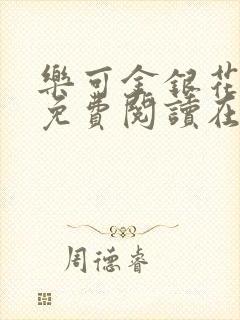 樂可金銀花
免費閱讀在
周德睿